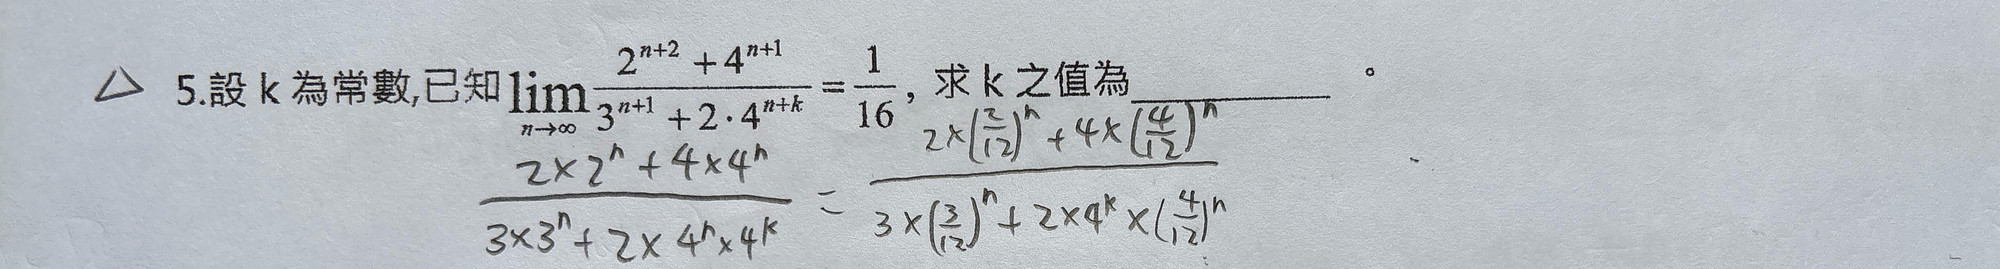 △ 5.設 k 為常數,已知 lim_{n→∞} (2^{n+2} + 4^{n+1}) / (3^{n+1} + 2·4^{n+k}) = 1/16, 求 k 之值為________。
(2×2^n + 4×4^n) / (3×3^n + 2×4^n×4^k) = (2×(2/12)^n + 4×(4/12)^n) / (3×(3/12)^n + 2×4^k×(4/12)^n)